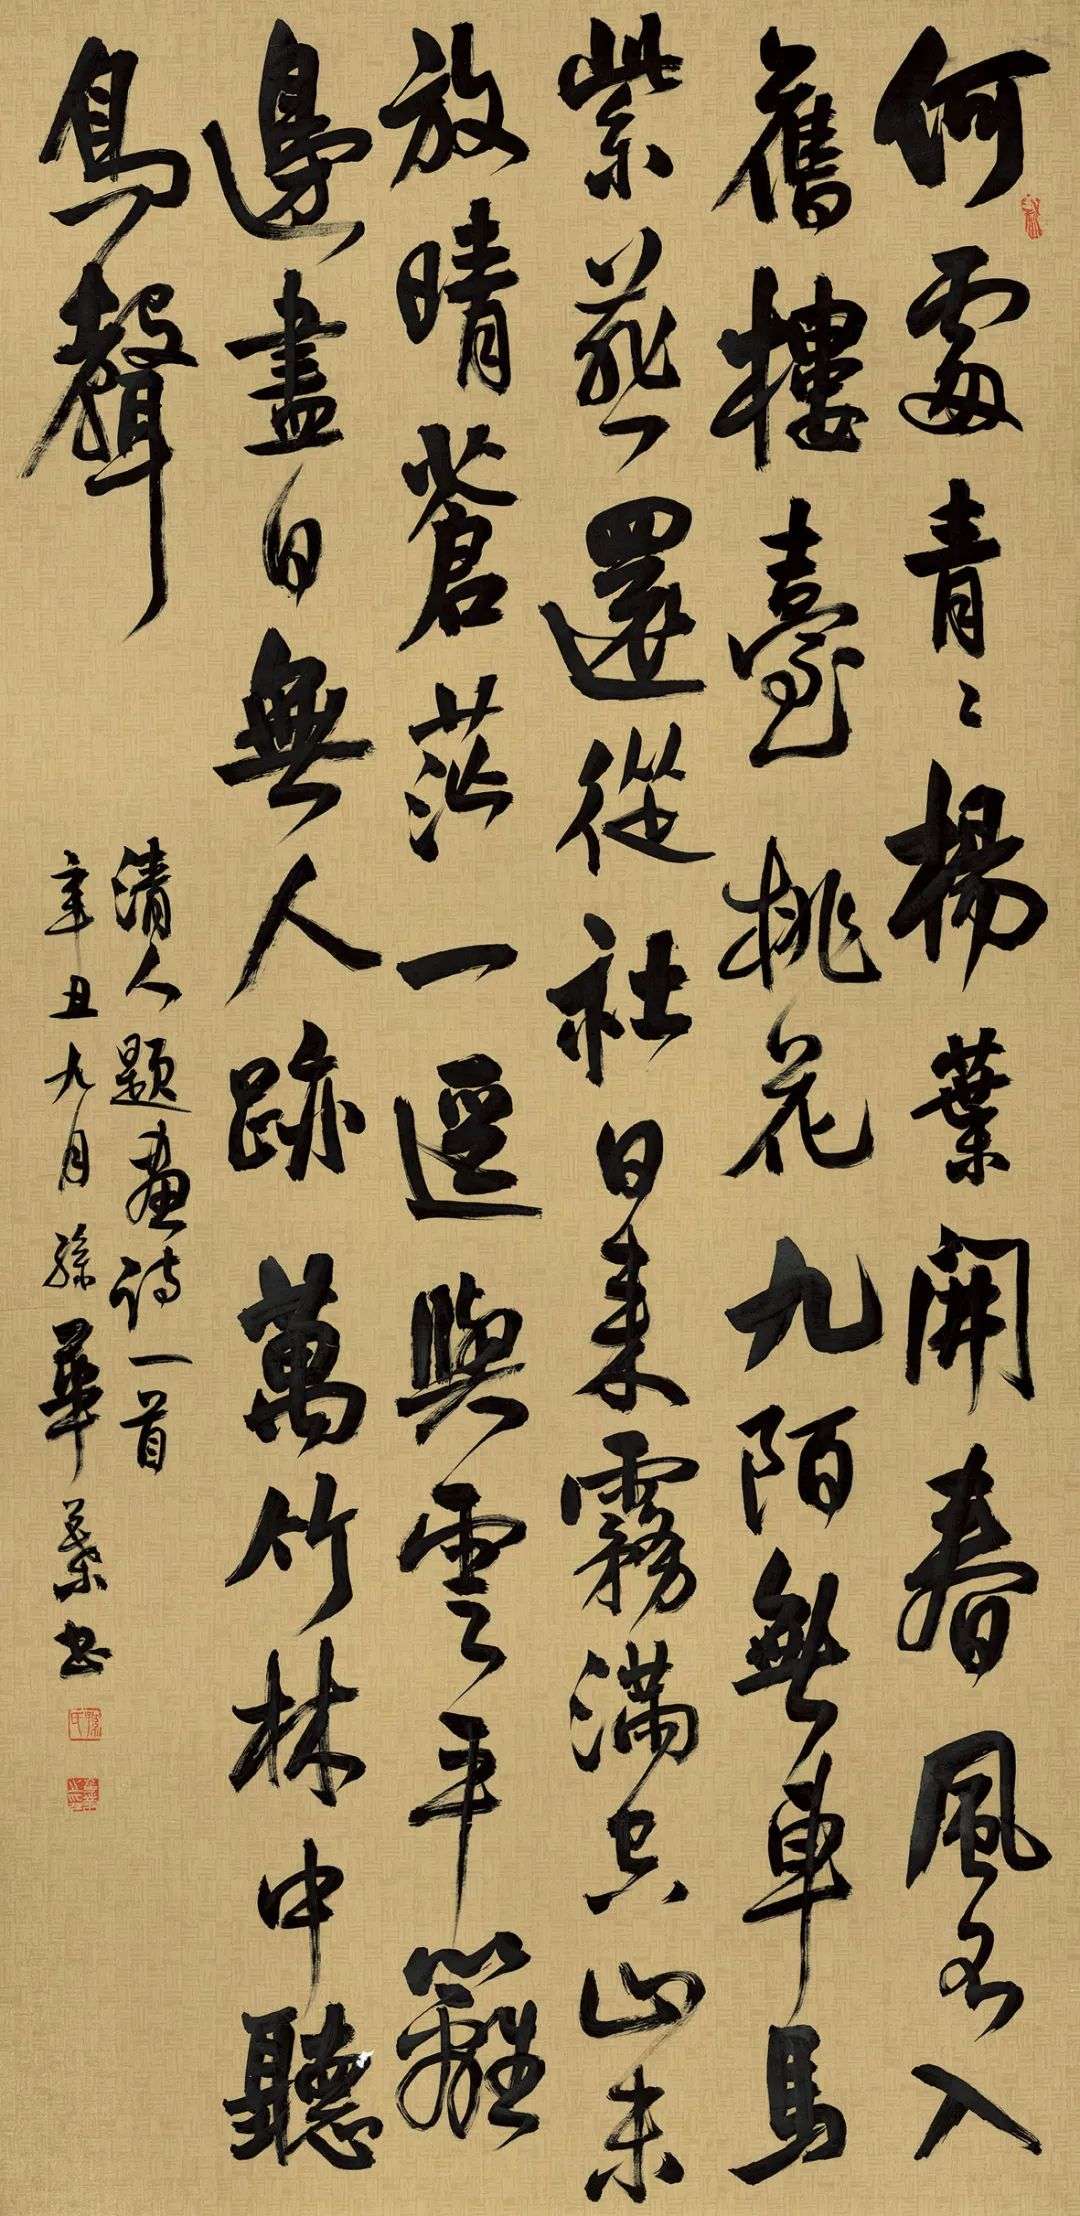 何處青〻楊葉開春風多入
舊樓臺桃花九陌無車馬
紫燕還從社日來霧滿空山未
放晴蒼茫一逕與雲平籬
邊盡日無人跡萬竹林中聽
鳥聲
清人題畫詩一首
辛丑九月孫華葉書